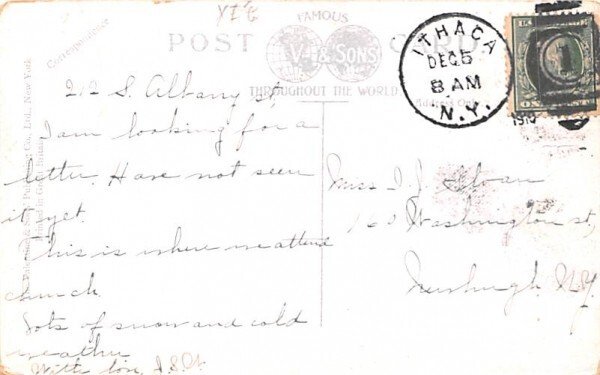 FAMOUS
POST CARD
V & SONS
THROUGHOUT THE WORLD
Correspondence
Address Only
ITHACA
DEC 5
8 AM
N.Y.
1910
1
212 S. Albany St,
I am looking for a
letter. Have not seen
it yet.
This is where we attend
church.
Lots of snow and cold
weather
With love, J.S.
Miss I. J. Sloan
160 Washington st,
Newburgh N.Y.